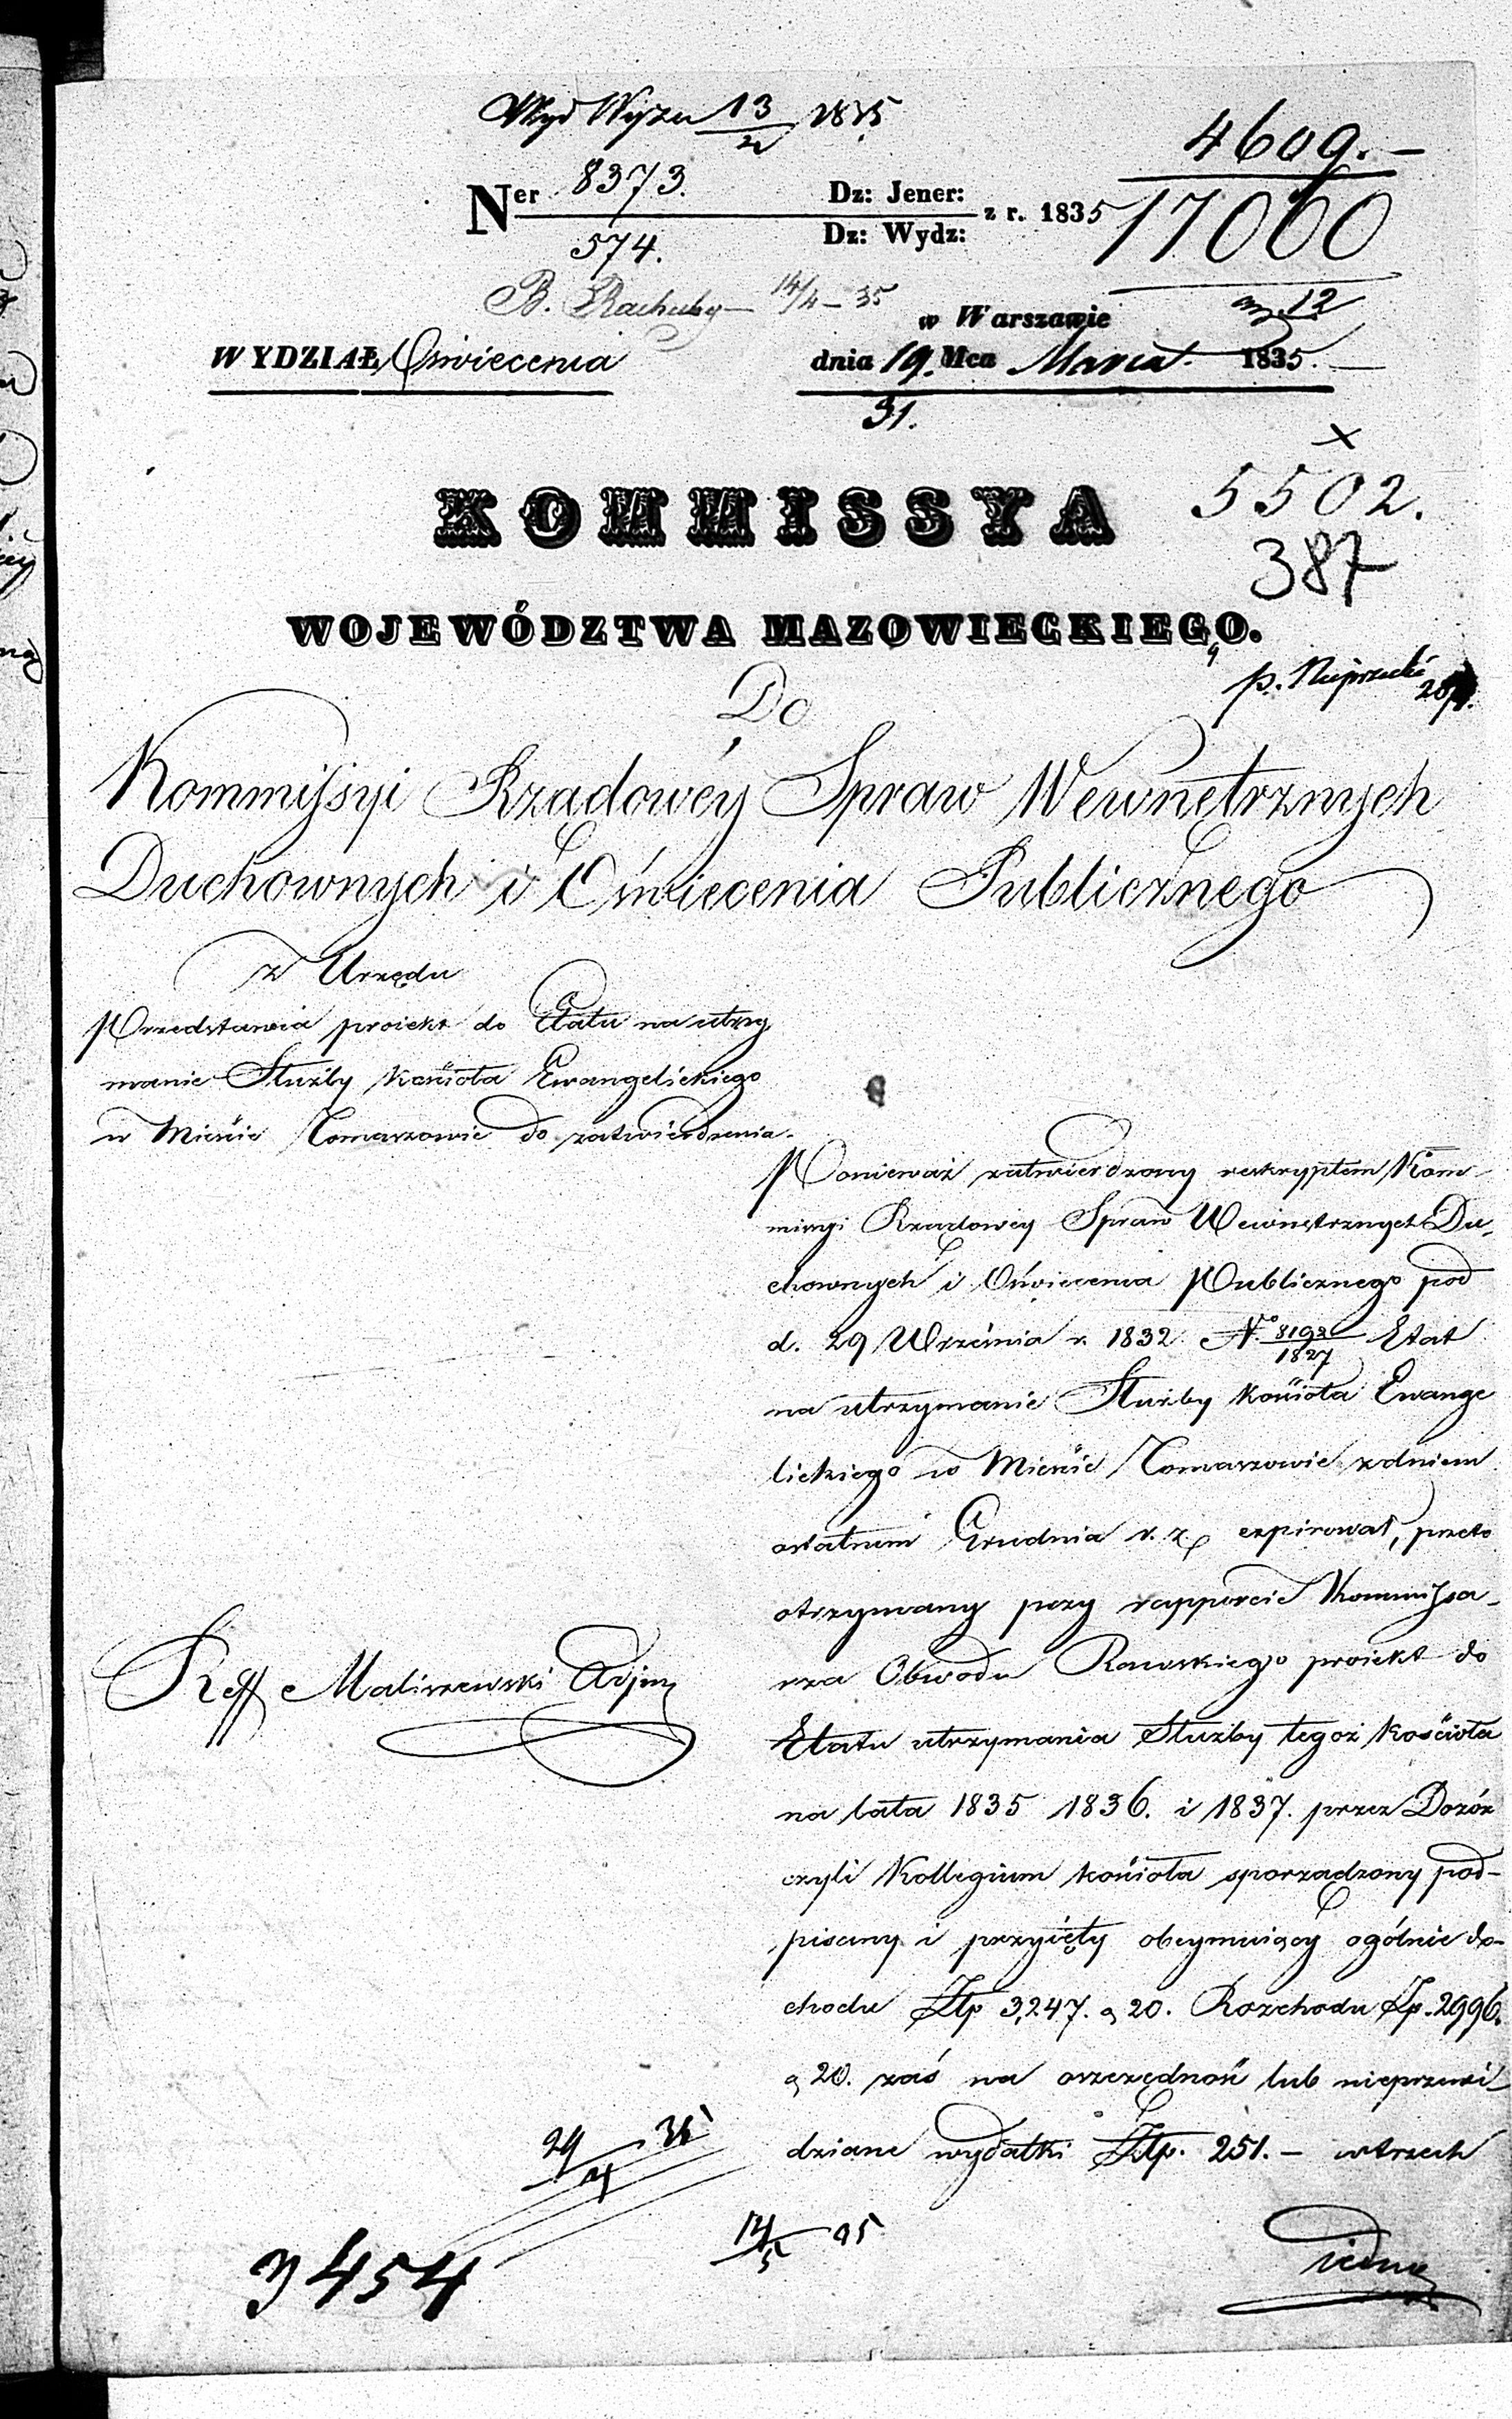 13/2 1835
4609.—
Ner 8373. Dz: Jener: z r. 1835
574. Dz: Wydz:
17000
B. Rachuby — 14/4 — 35
w Warszawie
12
WYDZIAŁ Oświecenia
dnia 19. Mca Marca 1835.
31.
x
5502.
KOMMISSYA
387
WOJEWÓDZTWA MAZOWIECKIEGO.
p.
Do
Kommissyi Rządowéy Spraw Wewnętrznych
Duchownych i Oświecenia Publicznego
z Urzędu
Przedstawia proiekt do Etatu na utrzy
manie Służby kościoła Ewangelickiego
w Mieście Tomaszowie do zatwierdzenia.
Ponieważ zatwierdzony reskryptem Kom
missyi Rządowey Spraw Wewnętrznych Du-
chownych i Oświecenia Publicznego pod
d. 29 Września r. 1832 No 8192/1827 Etat
na utrzymanie Służby kościoła Ewange
lickiego w Mieście Tomaszowie z dniem
ostatnim Grudnia r. z. expirował, przeto
otrzymany przy rapporcie Kommissa-
rza Obwodu Rawskiego proiekt do
Etatu utrzymania Służby tegoż kościoła
na lata 1835 1836. i 1837. przez Dozór
czyli Kollegium kościoła sporządzony pod-
pisany i przyięty obeymuiący ogólnie do-
chodu Złp 3,247. g 20. Rozchodu Złp. 2996.
g 20. zaś na oszczędność lub nieprzewi-
dziane wydatki Złp. 251. — w trzech
Reff Maliszewski Adjun
29/4 35
14/5 35
3454
iedne